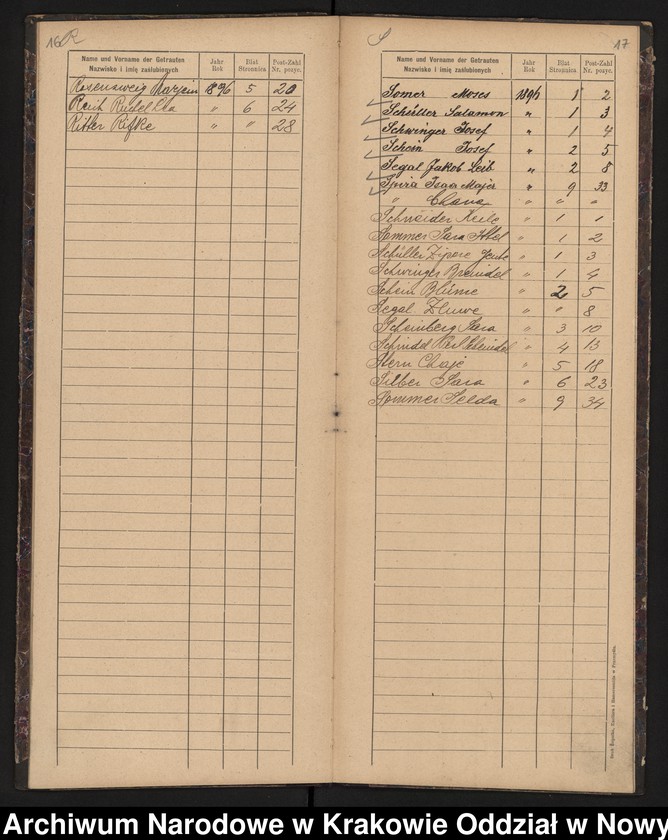 16 R
Name und Vorname der Getrauten
Nazwisko i imię zaślubionych
Jahr
Rok
Blat
Stronnica
Post-Zahl
Nr. pozyc.
Rosenzweig 1896 5 20
Ruchel Lea " 6 24
Ritter Rifke " " 28
S 17
Name und Vorname der Getrauten
Nazwisko i imię zaślubionych
Jahr
Rok
Blat
Stronnica
Post-Zahl
Nr. pozyc.
Somer Moses 1896 1 2
Schüller Salamon " 1 3
Schwinger Josef " 1 4
Schein Josef " 2 5
Segal Jakob Leib " 2 8
Spira Majer " 9 33
" Chane " " "
Schneider Keile " 1 1
Sommer Sara Ittel " 1 2
Schüller Zipore " 1 3
Schwinger Breindel " 1 4
Schein Blüme " 2 5
Segal " " 8
Scheinberg Sara " 3 10
Schindel " 4 13
Stern Chaje " 5 18
Silber Sara " 6 23
Sommer Selda " 9 34
Archiwum Narodowe w Krakowie Oddział w Nowy